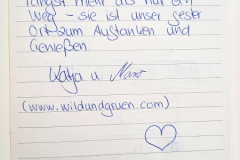 längst mehr als nur ein
Weg – sie ist unser fester
Ort zum Auftanken und
Genießen.
Katja u.
(www.wildundgruen.com)